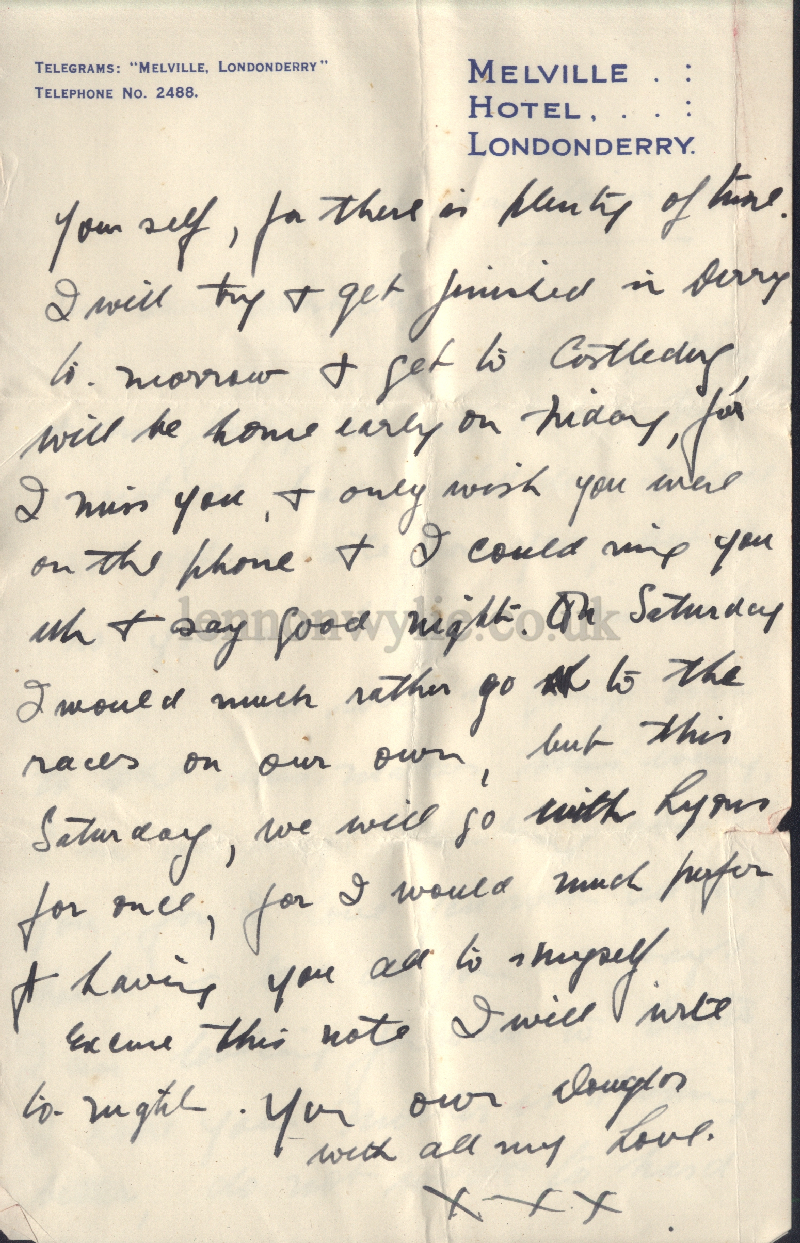 TELEGRAMS: "MELVILLE, LONDONDERRY"
TELEPHONE No. 2488.
MELVILLE . :
HOTEL, . . :
LONDONDERRY.
your self, for there is plenty of time.
I will try & get finished in Derry
to-morrow & get to Castlederg,
will be home early on Friday, for
I miss you, & only wish you were
on the phone & I could ring you
up & say good night. On Saturday
I would much rather go to the
races on our own, but this
Saturday, we will go with Lyons
for once, for I would much prefer
having you all to myself
Excuse this note I will write
to-night. Your own Douglas
with all my Love.
X X X
lennonwylie.co.uk